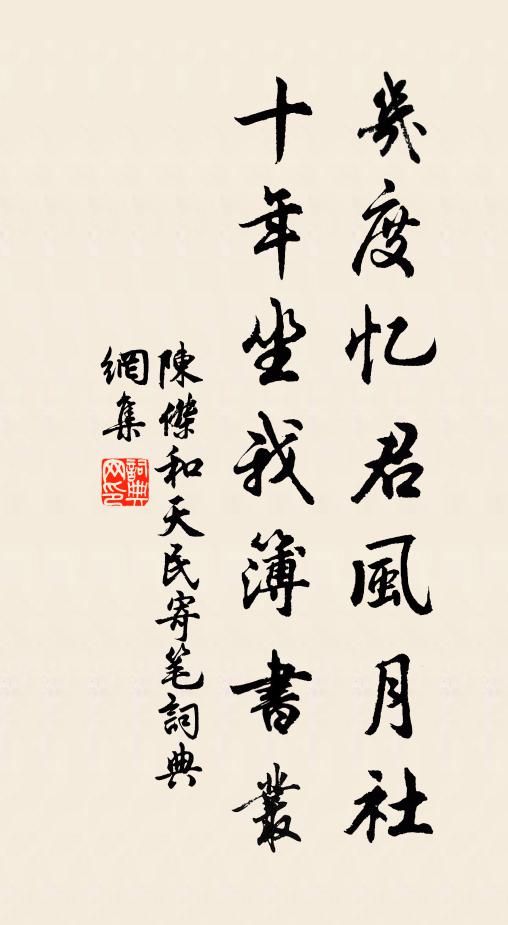 幾度忆君風月社
十年坐我簿書叢
陳傑和天民寄笔詞典
網集
詞典網印